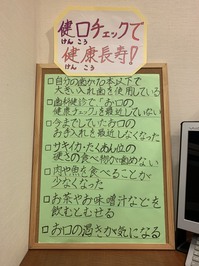 健口チェックで
けん こう
健康長寿!
けん こう
□自分の歯が20本以下で
大きい入れ歯を使用している
□歯科健診で「お口の
健康チェック」を最近していない
□今までしていたお口の
お手入れを最近しなくなった
□サキイカ・たくあん位の
硬さの食べ物が歯めない
□肉や魚を食べることが
少なくなった
□お茶やお味噌汁などを
飲むとむせる
□お口の渇きが気になる